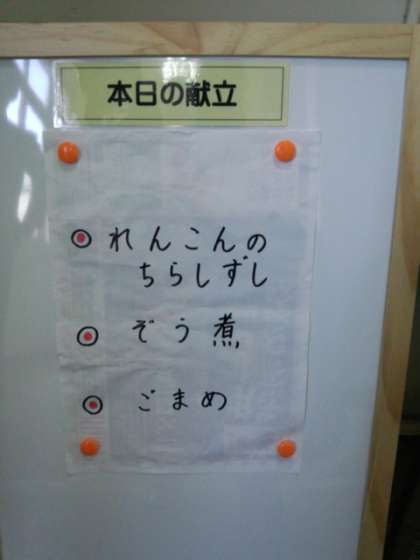 本日の献立
れんこんの
ちらしずし
ぞう煮
ごまめ